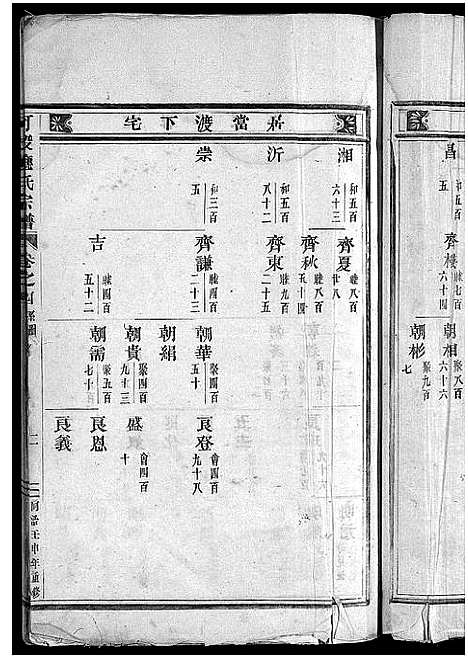 昌
和五百
五
齊樓
陸七百
六十四
朝相
聚八百
六十六
朝彬
聚九百
七
居當渡下宅
湘
和五百
六十三
沂
和五百
八十二
崇
和三百
五
齊夏
陸八百
廿八
齊秋
陸八百
齊東
陸九百
二十五
齊謙
陸四百
二十三
吉
陸四百
五十二
朝華
聚四百
五十
朝紹
朝貴
聚四百
九十三
朝需
聚五百
七十
良登
會四百
九十八
盛
會四百
十
良恩
良義
氏宗譜
卷之四
系圖
二
同治壬申年重修